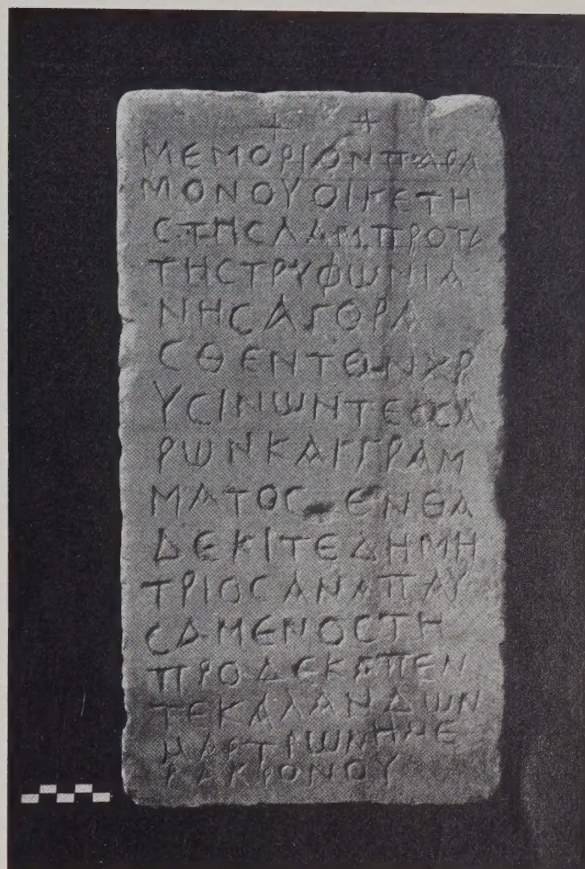 ΜΕΜΟΡΙΟΝΠΑΡΑ
ΜΟΝΟΥΟΙΚΕΤΗ
СΤΗСΛΑΜΠΡΟΤΑ
ΤΗСΤΡΥΦΩΝΙΑ
ΝΗСΑΓΟΡΑ
СΘΕΝΤΟΝΧΡ
ΥСΙΝΩΝΤΕССΑ
ΡΩΝΚΑΙΓΡΑΜ
ΜΑΤΟСΕΝΘΑ
ΔΕΚΙΤΕΔΗΜΗ
ΤΡΙΟСΑΝΑΠΑΥ
СΑΜΕΝΟСΤΗ
ΠΡΟΔΕΚΑΠΕΝ
ΤΕΚΑΛΑΝΔΩΝ
ΜΑΡΤΙΩΝΗΜΕ
ΡΑΚΡΟΝΟΥ